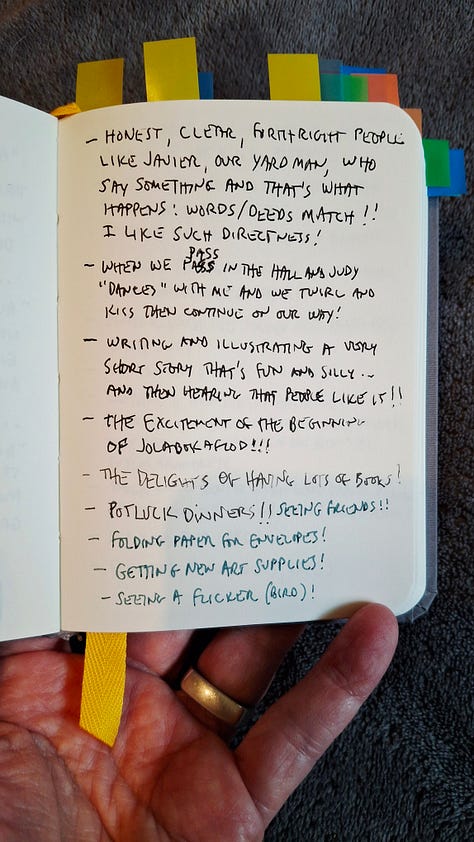 - HONEST, CLEAR, FORTHRIGHT PEOPLE
LIKE JAVIER, OUR YARD MAN, WHO
SAY SOMETHING AND THAT'S WHAT
HAPPENS: WORDS/DEEDS MATCH!!
I LIKE SUCH DIRECTNESS!
PASS
- WHEN WE PASS IN THE HALL AND JUDY
"DANCES" WITH ME AND WE TWIRL AND
KISS THEN CONTINUE ON OUR WAY!
- WRITING AND ILLUSTRATING A VERY
SHORT STORY THAT'S FUN AND SILLY...
AND THEN HEARING THAT PEOPLE LIKE IT!!
- THE EXCITEMENT OF THE BEGINNING
OF JOLABOKAFLOD!!!
- THE DELIGHTS OF HAVING LOTS OF BOOKS!
- POTLUCK DINNERS!! SEEING FRIENDS!!
- FOLDING PAPER FOR ENVELOPES!
- GETTING NEW ART SUPPLIES!
- SEEING A FLICKER (BIRD)!